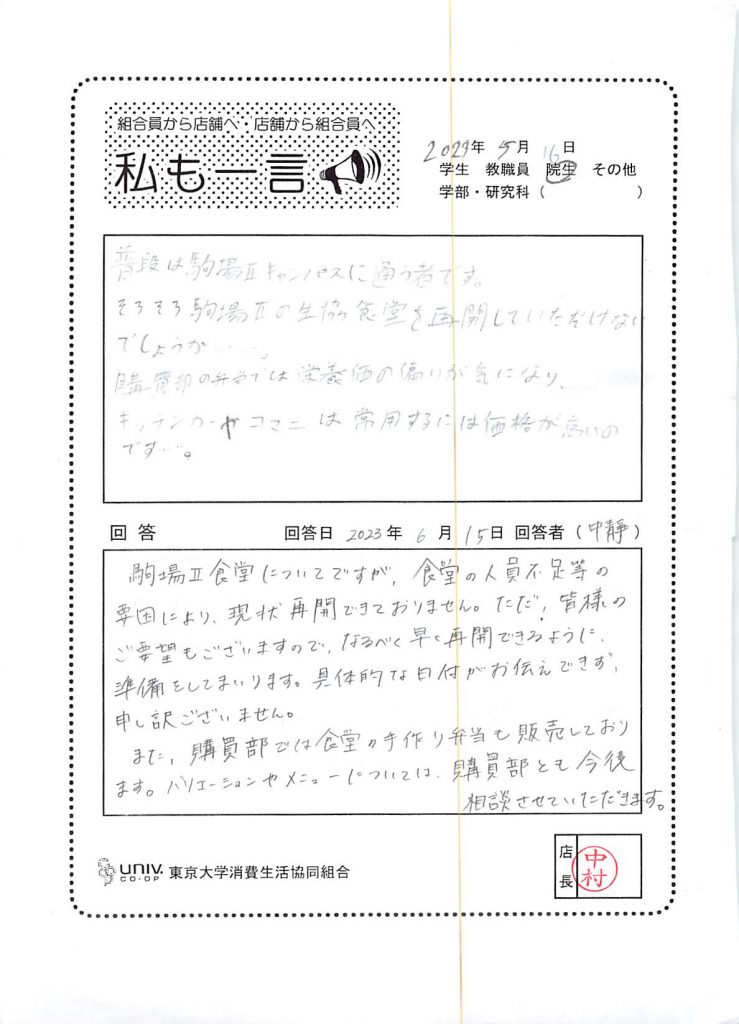 組合員から店舗へ・店舗から組合員へ
私も一言
2023年 5月 16日
学生 教職員 院生 その他
学部・研究科（ ）
普段は駒場Ⅱキャンパスに通う者です。
そろそろ駒場Ⅱの生協食堂を再開していただけない
でしょうか……。
購買部の弁当では栄養価の偏りが気になり、
キッチンカーやコマニは常用するには価格が高いの
です…。
回答 回答日 2023年 6月 15日 回答者（中静）
駒場Ⅱ食堂についてですが、食堂の人員不足等の
要因により、現状再開できておりません。ただ、皆様の
ご要望もございますので、なるべく早く再開できるように、
準備をしてまいります。具体的な日付がお伝えできず、
申し訳ございません。
また、購買部では食堂の手作り弁当も販売しており
ます。バリエーションやメニューについては、購買部とも今後
相談させていただきます。
UNIV. CO-OP 東京大学消費生活協同組合
店長 中村